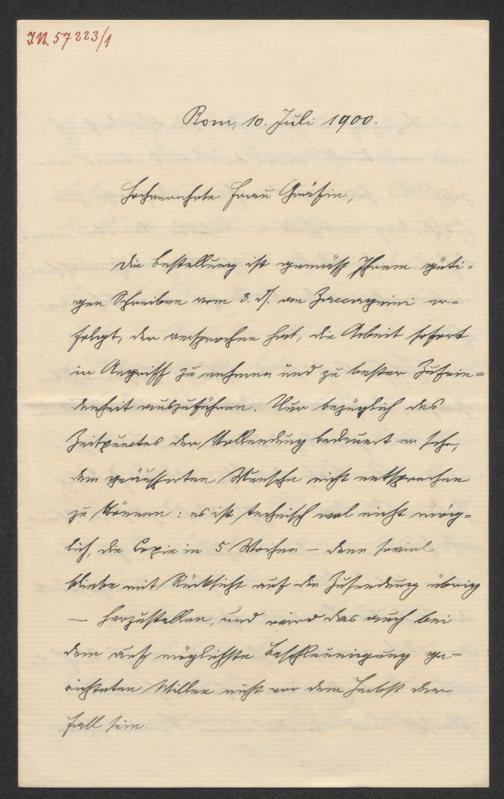 IN. 57223/1
Rom, 10. Juli 1900.
Hochverehrte Frau Gräfin,
Die Bestellung ist gemäß Ihrem güti-
gen Schreiben vom 3. d. an Zaccagnini er-
folgt, der versprochen hat, die Arbeit sofort
in Angriff zu nehmen und zu bester Zufrie-
denheit auszuführen. Nur bezüglich des
Zeitpunctes der Vollendung bedauert er sehr,
dem geäußerten Wunsche nicht entsprechen
zu können: es ist technisch wol nicht mög-
lich, die Copie in 5 Wochen – denn soviel
bliebe mit Rücksicht auf die Zusendung übrig
– herzustellen, und wird das auch bei
dem auf möglichste Beschleunigung ge-
richteten Willen nicht vor dem Herbst der
Fall sein.